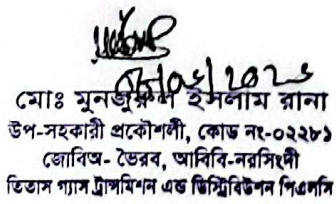 মোঃ মুনজুরুল ইসলাম রানা
উপ-সহকারী প্রকৌশলী, কোড নং-০২২৮১
জোবিঅ- ভৈরব, আবিবি-নরসিংদী
তিতাস গ্যাস ট্রান্সমিশন এন্ড ডিস্ট্রিবিউশন পিএলসি